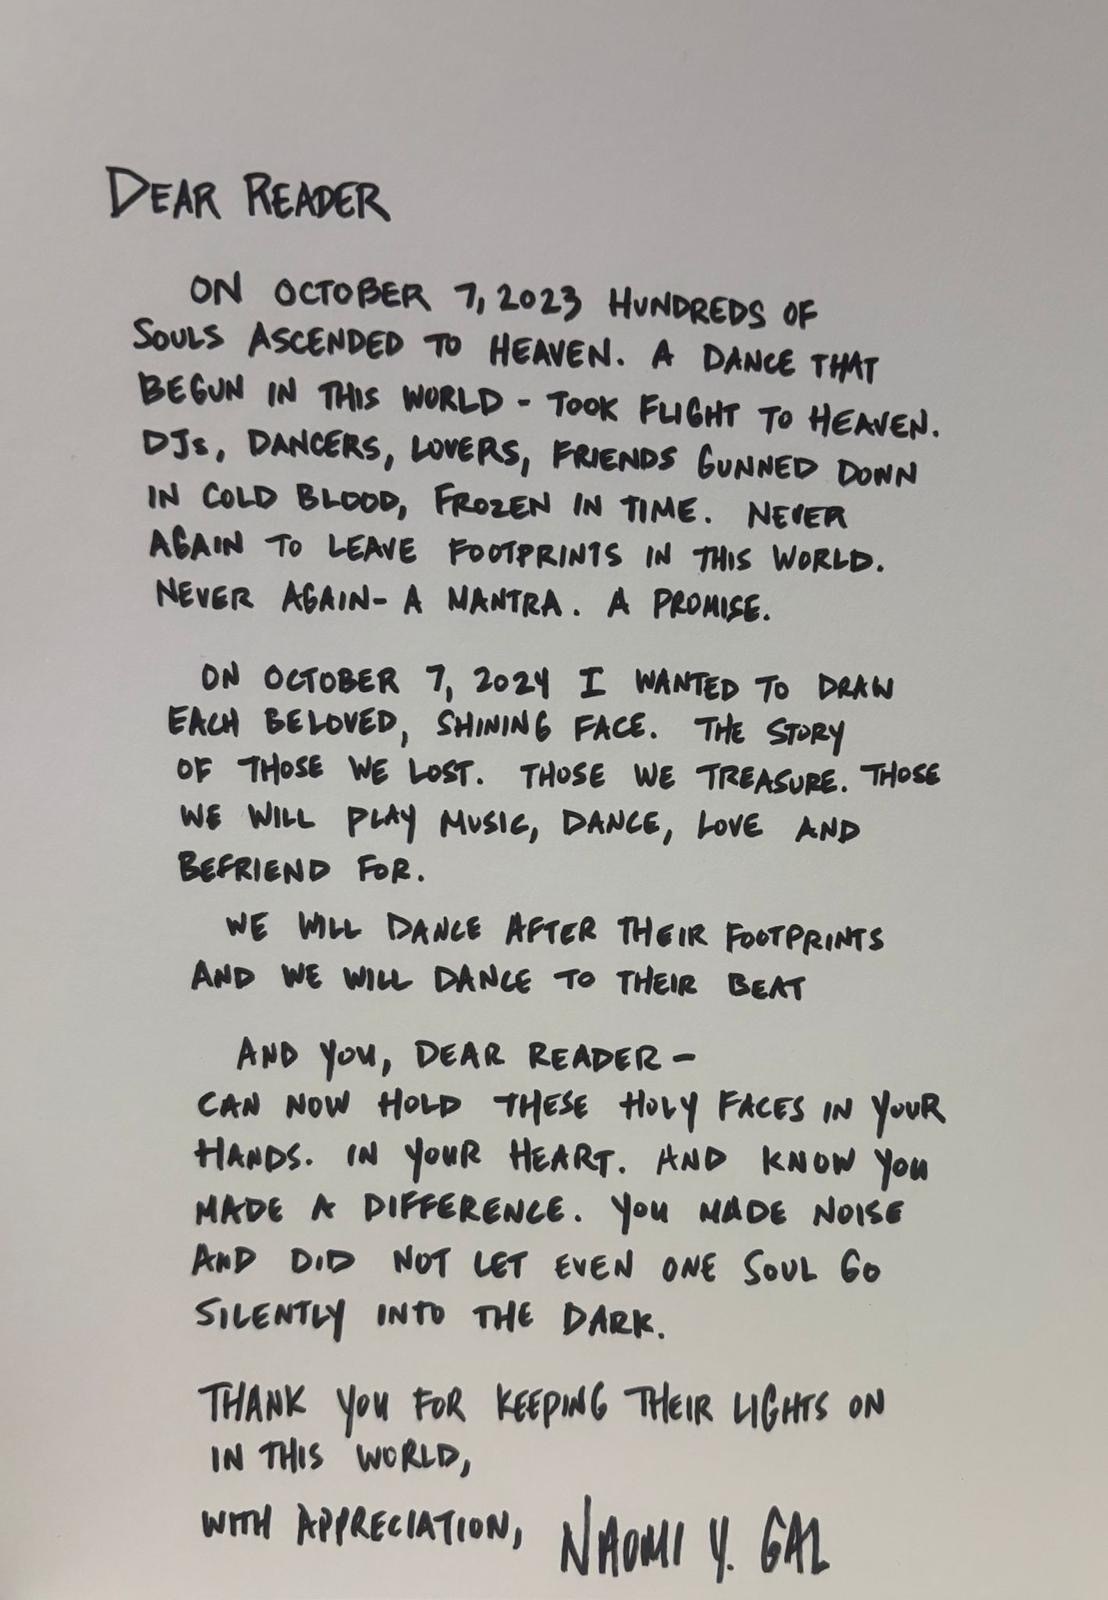 DEAR READER
ON OCTOBER 7, 2023 HUNDREDS OF
SOULS ASCENDED TO HEAVEN. A DANCE THAT
BEGUN IN THIS WORLD - TOOK FLIGHT TO HEAVEN.
DJs, DANCERS, LOVERS, FRIENDS GUNNED DOWN
IN COLD BLOOD, FROZEN IN TIME. NEVER
AGAIN TO LEAVE FOOTPRINTS IN THIS WORLD.
NEVER AGAIN - A MANTRA. A PROMISE.
ON OCTOBER 7, 2024 I WANTED TO DRAW
EACH BELOVED, SHINING FACE. THE STORY
OF THOSE WE LOST. THOSE WE TREASURE. THOSE
WE WILL PLAY MUSIC, DANCE, LOVE AND
BEFRIEND FOR.
WE WILL DANCE AFTER THEIR FOOTPRINTS
AND WE WILL DANCE TO THEIR BEAT
AND YOU, DEAR READER -
CAN NOW HOLD THESE HOLY FACES IN YOUR
HANDS. IN YOUR HEART. AND KNOW YOU
MADE A DIFFERENCE. YOU MADE NOISE
AND DID NOT LET EVEN ONE SOUL GO
SILENTLY INTO THE DARK.
THANK YOU FOR KEEPING THEIR LIGHTS ON
IN THIS WORLD,
WITH APPRECIATION, NAOMI Y. GAL